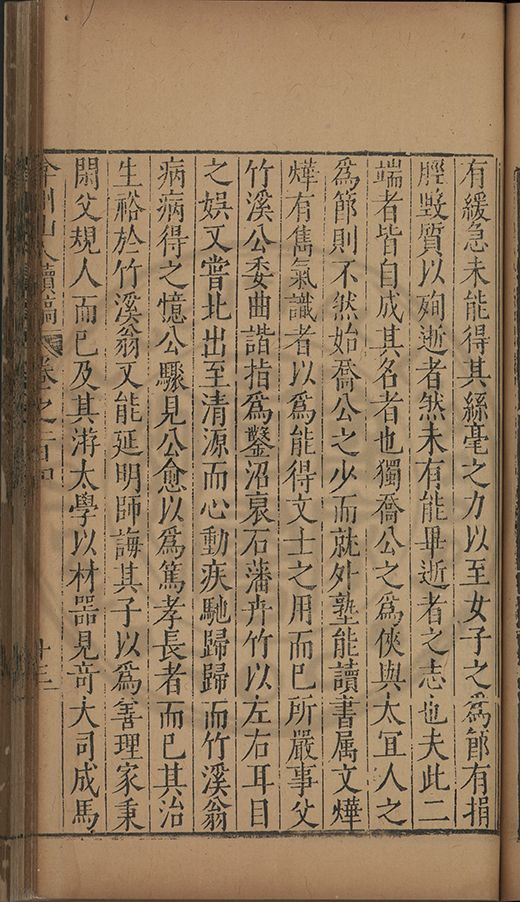 有緩急未能得其絲毫之力以至女子之爲節有捐
脛毀質以殉逝者然未有能畢逝者之志也夫此二
端者皆自成其名者也獨喬公之爲俠與太宜人之
爲節則不然始喬公之少而就外塾能讀書属文燁
燁有雋氣識者以爲能得文士之用而已所嚴事父
竹溪公委曲諧指爲鑿沼裒石藩卉竹以左右耳目
之娛又嘗北出至清源而心動疾馳歸歸而竹溪翁
病病得之憶公驟見公愈以爲篤孝長者而已其治
生裕於竹溪翁又能延明師誨其子以爲善理家秉
閑父規人而已及其游太學以材器見竒大司成馬
弇州山人續稿 卷之一百 十三